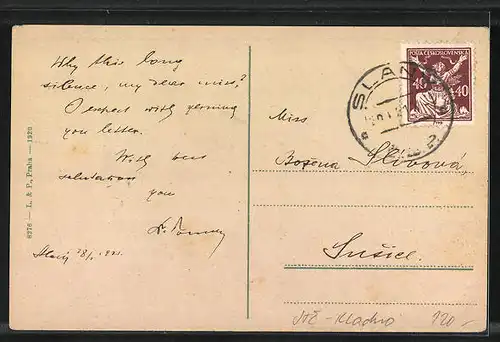 Why this long
silence, my dear miss?
I expect with yerning
you letter.
With best
salutation
you
Slaný 28/1 1921.
8276 — L. & P., Praha — 1920
POŠTA ČESKOSLOVENSKÁ
40 40
SLANÝ
Miss
Božena Slibová,
Sušice.
Kladno 120.-